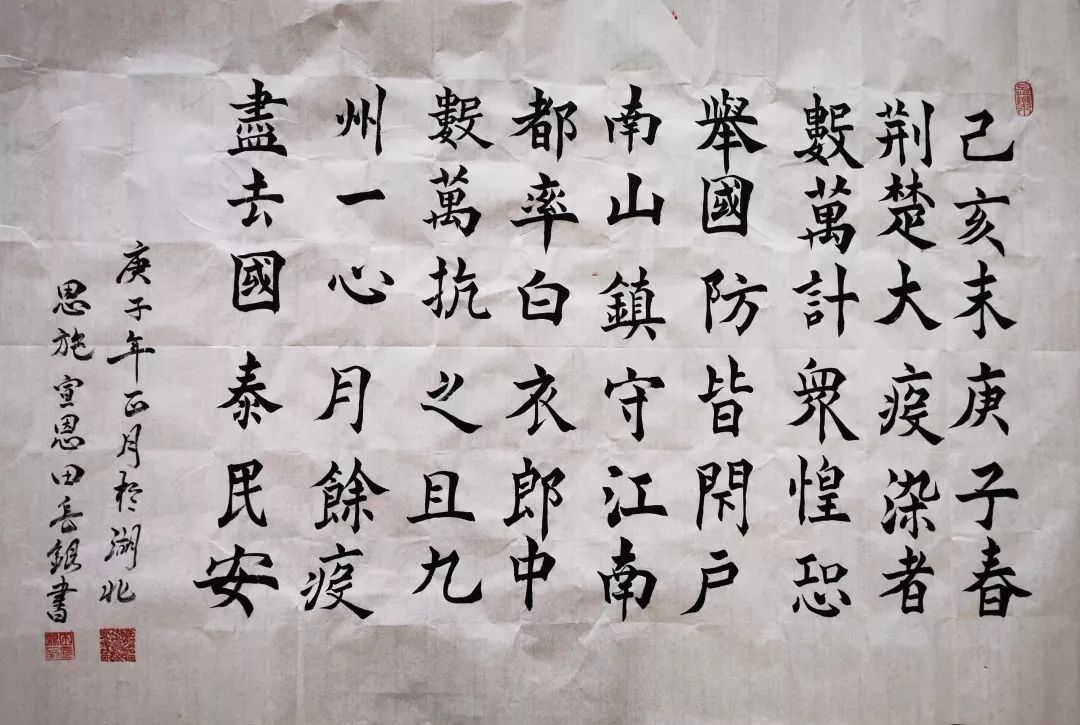 己亥末庚子春
荆楚大疫染者
數萬計衆惶恐
舉國防皆閉户
南山鎮守江南
都率白衣郎中
數萬抗之且九
州一心月餘疫
盡去國泰民安
庚子年正月於湖北
恩施宣恩田岳銀書